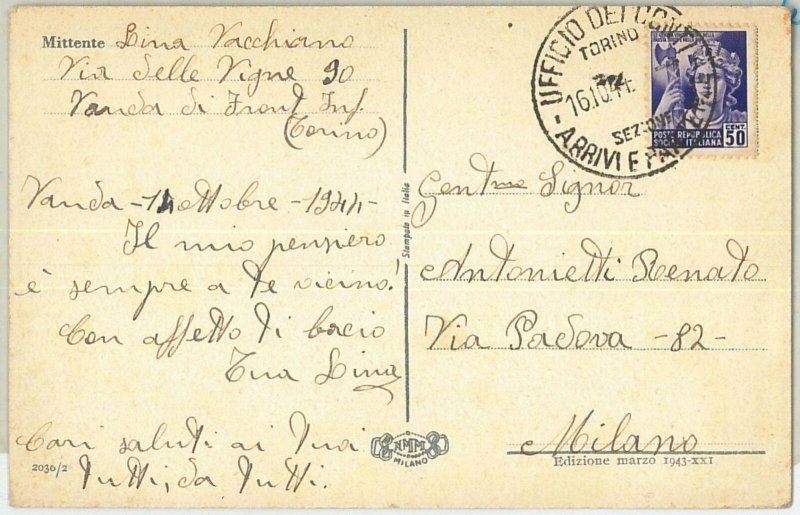 Mittente Lina Vacchiano
Via delle Vigne 90
Vanda di Front Inf.
(Torino)
Vanda - 14 ottobre - 1944 -
Il mio pensiero
è sempre a te vicino!
Con affetto ti bacio
Tua Lina
Cari saluti ai tuoi
tutti, da tutti.
2030/2
Stampato in Italia
NMM
MILANO
UFFICIO DEI CONTI
TORINO
16.10.44
SEZIONE
ARRIVI E PAR
POSTE REPUBBLICA
SOCIALE ITALIANA
CENT.
50
Gent.mo Signor
Antonietti Renato
Via Padova - 82 -
Milano
Edizione marzo 1943-XXI